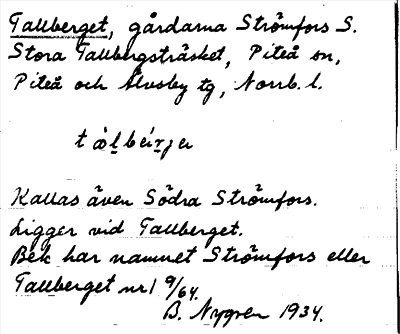 Tallberget, gårdarna Strömfors S.
Stora Tallbergsträsket, Piteå sn,
Piteå och Älvsby tg, Norrb. l.
Kallas även Södra Strömfors.
Ligger vid Tallberget.
Bek har namnet Strömfors eller
Tallberget nr 1 9/64.
B. Nygren 1934.